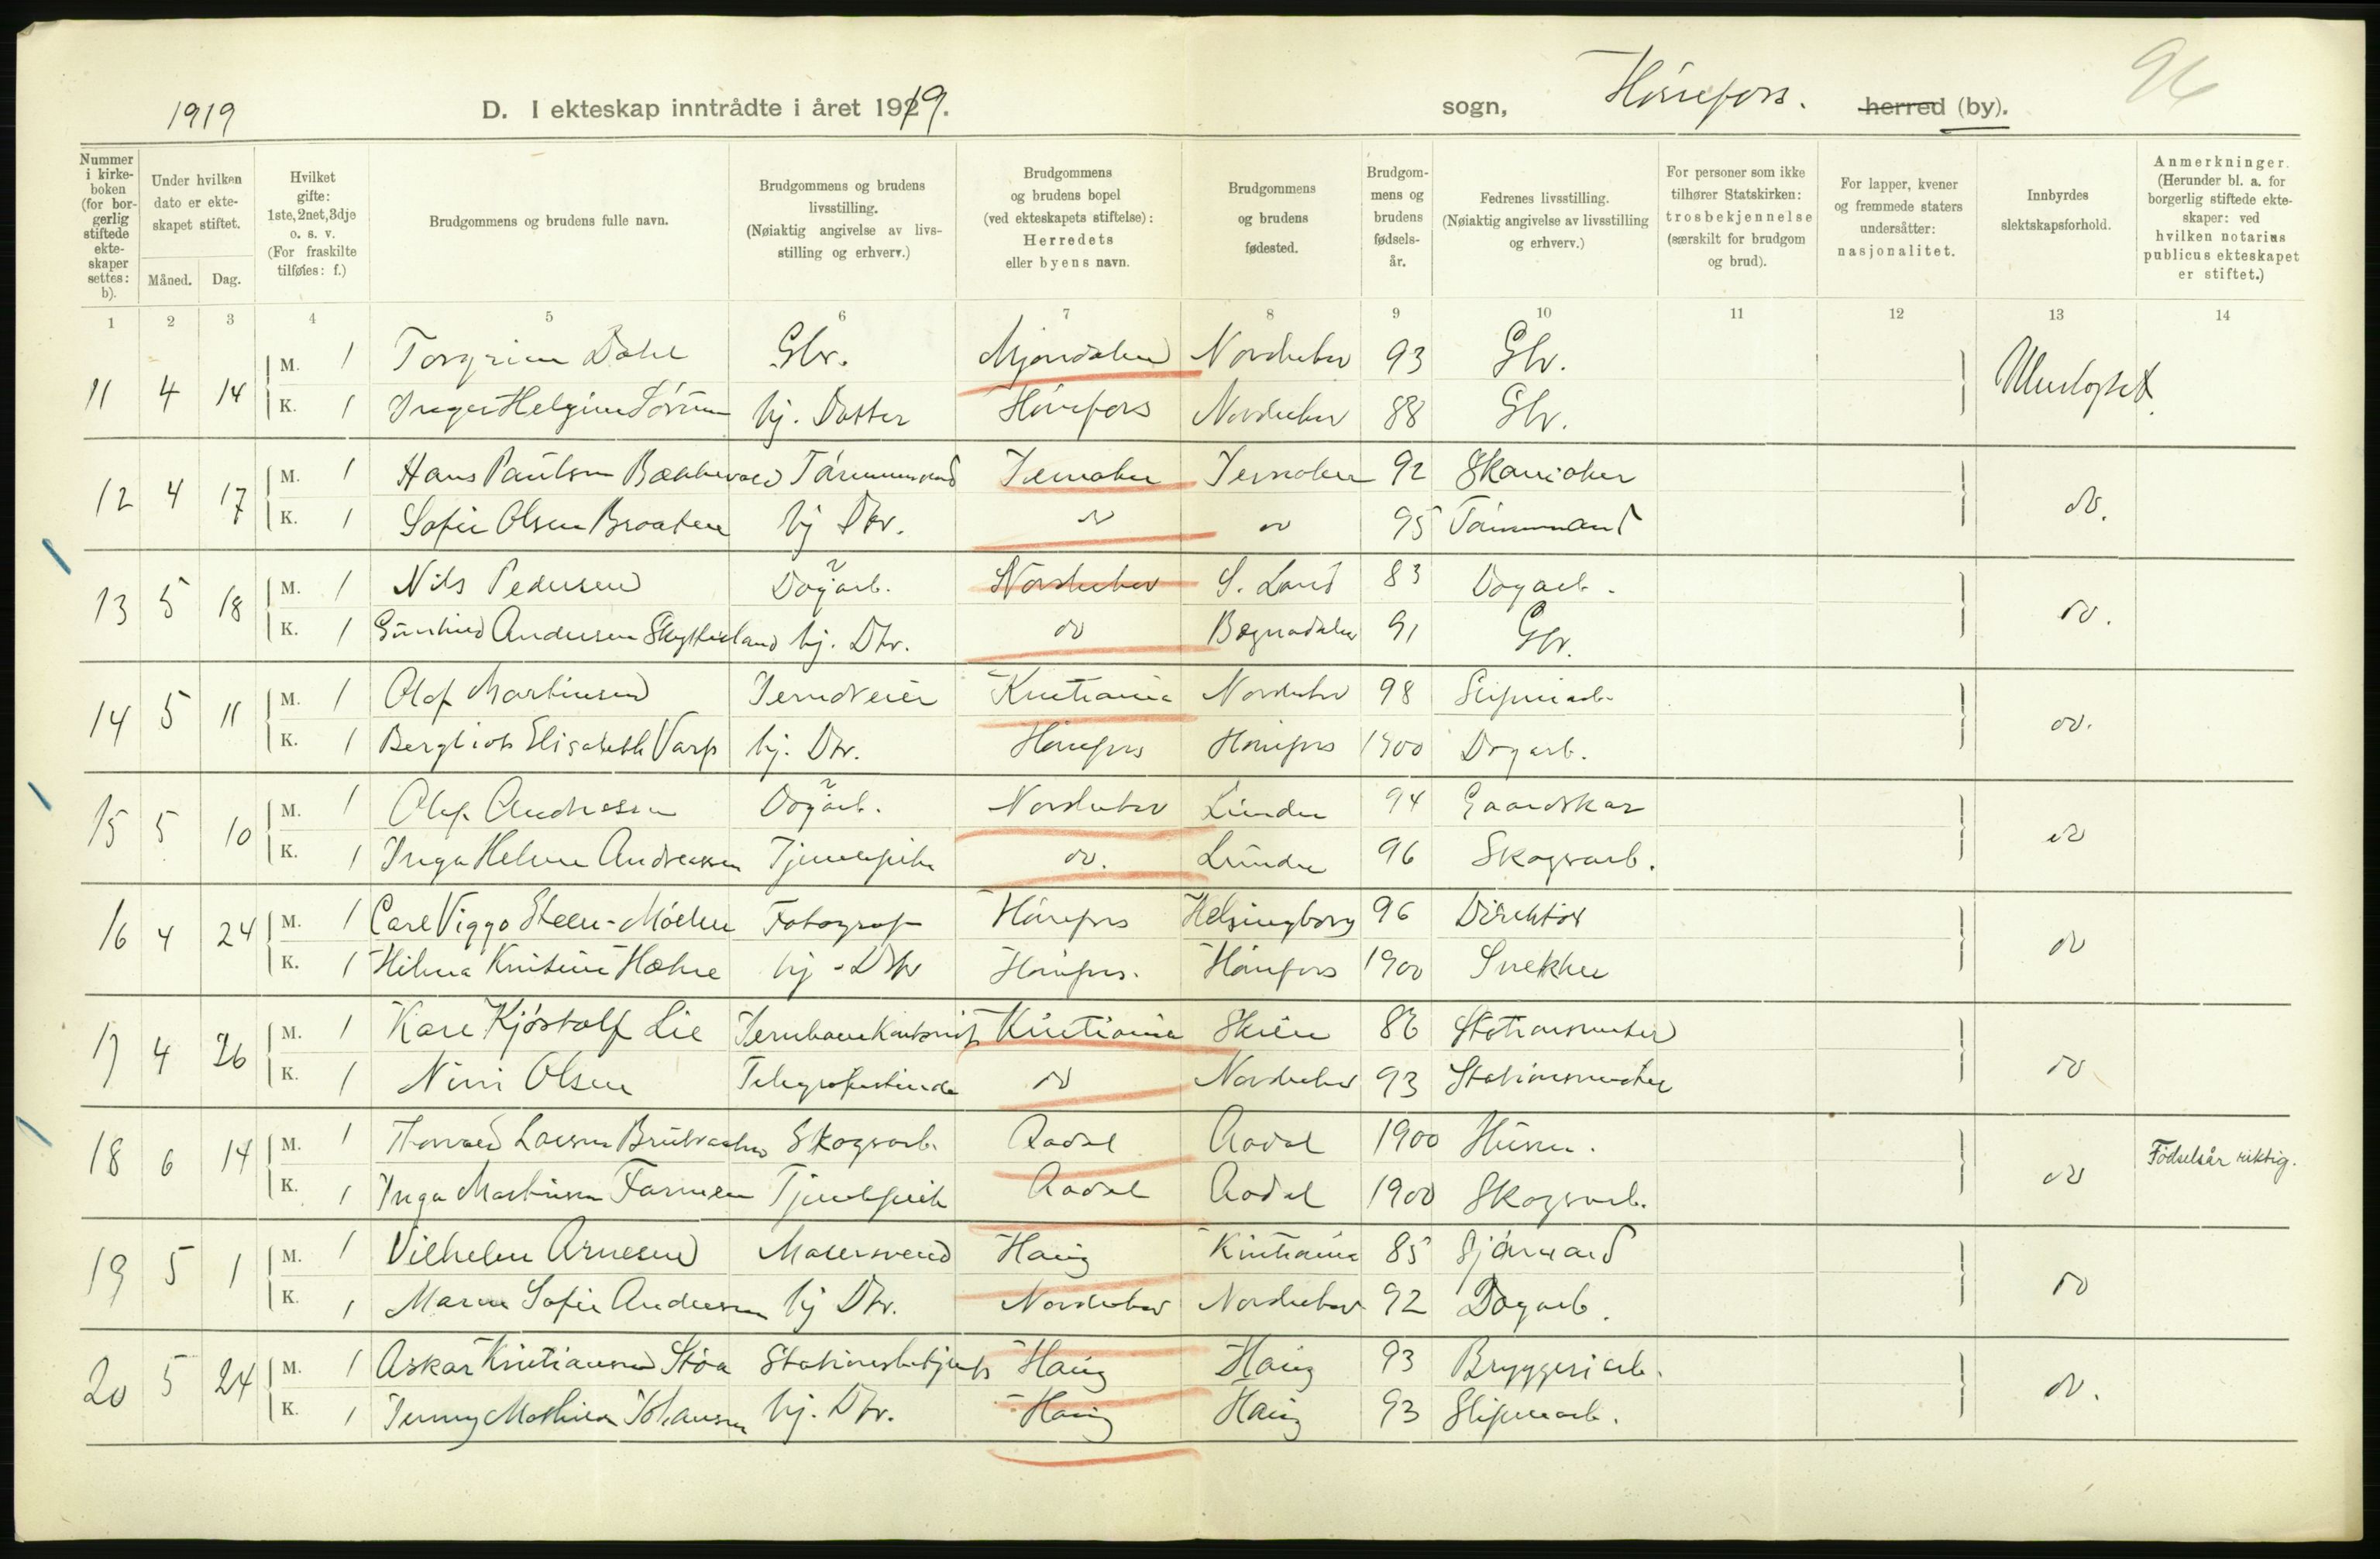 1919 D. I ekteskap inntrådte i året 1919. sogn, Hönefoss. herred (by). 96
Nummer i kirkeboken (for borgerlig stiftede ekteskaper settes: b).
Under hvilken dato er ekteskapet stiftet.
Måned. Dag.
Hvilket gifte: 1ste, 2net, 3dje o. s. v. (For fraskilte tilføies: f.)
Brudgommens og brudens fulle navn.
Brudgommens og brudens livsstilling. (Nøiaktig angivelse av livsstilling og erhverv.)
Brudgommens og brudens bopel (ved ekteskapets stiftelse): Herredets eller byens navn.
Brudgommens og brudens fødested.
Brudgommens og brudens fødselsår.
Fedrenes livsstilling. (Nøiaktig angivelse av livsstilling og erhverv.)
For personer som ikke tilhører Statskirken: trosbekjennelse (særskilt for brudgom og brud).
For lapper, kvener og fremmede staters undersåtter: nasjonalitet.
Innbyrdes slektskapsforhold.
Anmerkninger. (Herunder bl. a. for borgerlig stiftede ekteskaper: ved hvilken notarius publicus ekteskapet er stiftet.)
1 2 3 4 5 6 7 8 9 10 11 12 13 14
11 4 14 M. 1 Torgrim Dahl Gbr. Mjøndalen Norderhov 93 Gbr. Ubeslegtet
K. 1 Inger Helgine Sörum hj. Datter Hönefoss Norderhov 88 Gbr.
12 4 17 M. 1 Hans Paulsen Tömmermand Jevnaker Jevnaker 92 Skomaker do.
K. 1 Sofie Olsen Braaten hj Dtr. do do 95 Tömmermand
13 5 18 M. 1 Nils Pedersen Dagarb. Norderhov S. Land 83 Dagarb. do.
K. 1 Gunhild Andersen hj. Dtr. do Begnadalen 91 Gbr.
14 5 11 M. 1 Olaf Martinsen Kristiania Norderhov 98 Sliperiarb. do.
K. 1 Bergliot Elisabeth Varp hj. Dtr. Hönefoss Hönefoss 1900 Dagarb.
15 5 10 M. 1 Olaf Andresen Dagarb. Norderhov Lunder 94 Gaardskar do
K. 1 Inga Helene Andreassen Tjenestpike do. Lunder 96 Skogsarb.
16 4 24 M. 1 Carl Viggo Steen-Möller Fotograf Hönefoss Helsingborg 96 Direktör do
K. 1 Hilma Kristine Hæhre hj. Dtr Hönefoss. Hönefoss 1900 Snekker
17 4 26 M. 1 Kare Kjöstolf Lie Jernbanekontorist Kristiania Skien 86 Stationsmester do
K. 1 Nini Olsen Telegrafistinde do Norderhov 93 Stationsmester
18 6 14 M. 1 Thorvald Larsen Skogsarb. Aadal Aadal 1900 Husm. do Födselsår riktig.
K. 1 Inga Martinsen Tjenestpike Aadal Aadal 1900 Skogsarb.
19 5 1 M. 1 Vilhelm Arnesen Malersvend Haug Kristiania 85 Sjömand do
K. 1 Maren Sofie Andersen hj Dtr. Norderhov Norderhov 92 Dagarb.
20 5 24 M. 1 Askar Kristiansen Stöa Stationsbetjent Haug Haug 93 Bryggeriarb. do.
K. 1 Jenny Mathilde Johansen hj. Dtr. Haug Haug 93 Sliperiarb.